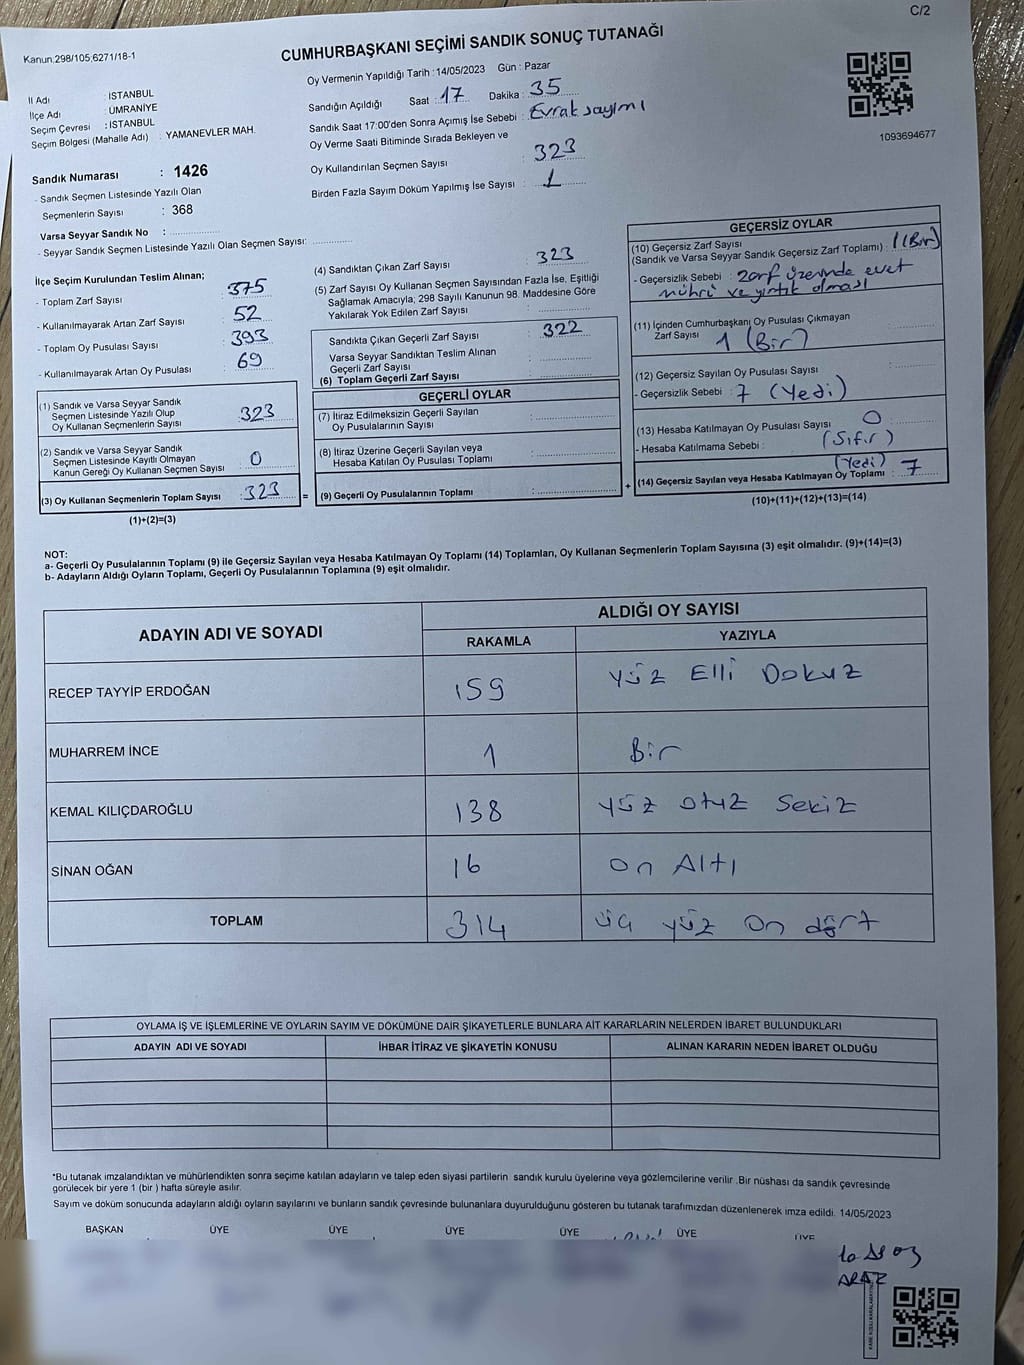 C/2
Kanun:298/105;6271/18-1
CUMHURBAŞKANI SEÇİMİ SANDIK SONUÇ TUTANAĞI
İl Adı : İSTANBUL
İlçe Adı : ÜMRANİYE
Seçim Çevresi : İSTANBUL
Seçim Bölgesi (Mahalle Adı) : YAMANEVLER MAH.
Sandık Numarası : 1426
- Sandık Seçmen Listesinde Yazılı Olan
Seçmenlerin Sayısı : 368
Varsa Seyyar Sandık No :
- Seyyar Sandık Seçmen Listesinde Yazılı Olan Seçmen Sayısı:
Oy Vermenin Yapıldığı Tarih : 14/05/2023 Gün : Pazar
Sandığın Açıldığı Saat : 17 Dakika : 35
Sandık Saat 17:00'den Sonra Açımış İse Sebebi : Evrak sayımı
Oy Verme Saati Bitiminde Sırada Bekleyen ve
Oy Kullandırılan Seçmen Sayısı : 323
Birden Fazla Sayım Döküm Yapılmış İse Sayısı : 1
1093694677
İlçe Seçim Kurulundan Teslim Alınan;
- Toplam Zarf Sayısı : 375
- Kullanılmayarak Artan Zarf Sayısı : 52
- Toplam Oy Pusulası Sayısı : 393
- Kullanılmayarak Artan Oy Pusulası : 69
(1) Sandık ve Varsa Seyyar Sandık
Seçmen Listesinde Yazılı Olup
Oy Kullanan Seçmenlerin Sayısı : 323
(2) Sandık ve Varsa Seyyar Sandık
Seçmen Listesinde Kayıtlı Olmayan
Kanun Gereği Oy Kullanan Seçmen Sayısı : 0
(3) Oy Kullanan Seçmenlerin Toplam Sayısı : 323 =
(1)+(2)=(3)
(4) Sandıktan Çıkan Zarf Sayısı : 323
(5) Zarf Sayısı Oy Kullanan Seçmen Sayısından Fazla İse, Eşitliği
Sağlamak Amacıyla; 298 Sayılı Kanunun 98. Maddesine Göre
Yakılarak Yok Edilen Zarf Sayısı :
Sandıkta Çıkan Geçerli Zarf Sayısı : 322
Varsa Seyyar Sandıktan Teslim Alınan
Geçerli Zarf Sayısı :
(6) Toplam Geçerli Zarf Sayısı :
GEÇERLİ OYLAR
(7) İtiraz Edilmeksizin Geçerli Sayılan
Oy Pusulalarının Sayısı :
(8) İtiraz Üzerine Geçerli Sayılan veya
Hesaba Katılan Oy Pusulası Toplamı :
(9) Geçerli Oy Pusulalarının Toplamı : +
GEÇERSİZ OYLAR
(10) Geçersiz Zarf Sayısı
(Sandık ve Varsa Seyyar Sandık Geçersiz Zarf Toplamı) : 1 (Bir)
- Geçersizlik Sebebi : zarf üzerinde evet
mührü ve yırtık olması
(11) İçinden Cumhurbaşkanı Oy Pusulası Çıkmayan
Zarf Sayısı 1 (Bir) :
(12) Geçersiz Sayılan Oy Pusulası Sayısı :
- Geçersizlik Sebebi : 7 (Yedi)
(13) Hesaba Katılmayan Oy Pusulası Sayısı : 0
- Hesaba Katılmama Sebebi : (Sıfır)
(Yedi)
(14) Geçersiz Sayılan veya Hesaba Katılmayan Oy Toplamı : 7
(10)+(11)+(12)+(13)=(14)
NOT:
a- Geçerli Oy Pusulalarının Toplamı (9) ile Geçersiz Sayılan veya Hesaba Katılmayan Oy Toplamı (14) Toplamları, Oy Kullanan Seçmenlerin Toplam Sayısına (3) eşit olmalıdır. (9)+(14)=(3)
b- Adayların Aldığı Oyların Toplamı, Geçerli Oy Pusulalarının Toplamına (9) eşit olmalıdır.
ADAYIN ADI VE SOYADI
ALDIĞI OY SAYISI
RAKAMLA YAZIYLA
RECEP TAYYİP ERDOĞAN 159 Yüz Elli Dokuz
MUHARREM İNCE 1 Bir
KEMAL KILIÇDAROĞLU 138 Yüz otuz Sekiz
SİNAN OĞAN 16 On Altı
TOPLAM 314 üç yüz On dört
OYLAMA İŞ VE İŞLEMLERİNE VE OYLARIN SAYIM VE DÖKÜMÜNE DAİR ŞİKAYETLERLE BUNLARA AİT KARARLARIN NELERDEN İBARET BULUNDUKLARI
ADAYIN ADI VE SOYADI İHBAR İTİRAZ VE ŞİKAYETİN KONUSU ALINAN KARARIN NEDEN İBARET OLDUĞU
*Bu tutanak imzalandıktan ve mühürlendikten sonra seçime katılan adayların ve talep eden siyasi partilerin sandık kurulu üyelerine veya gözlemcilerine verilir .Bir nüshası da sandık çevresinde
görülecek bir yere 1 (bir ) hafta süreyle asılır.
Sayım ve döküm sonucunda adayların aldığı oyların sayılarını ve bunların sandık çevresinde bulunanlara duyurulduğunu gösteren bu tutanak tarafımızdan düzenlenerek imza edildi. 14/05/2023
BAŞKAN ÜYE ÜYE ÜYE ÜYE ÜYE ÜYE
ARAZ